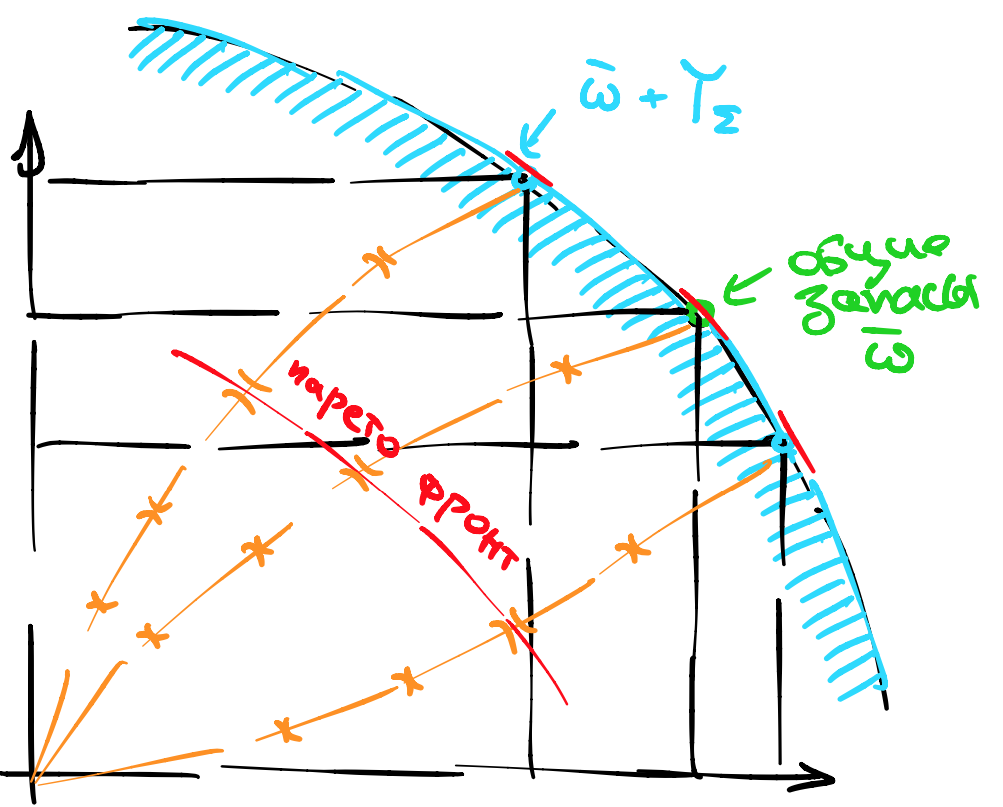 ω̄ + Y_Σ
общие
запасы
ω̄
парето
фронт